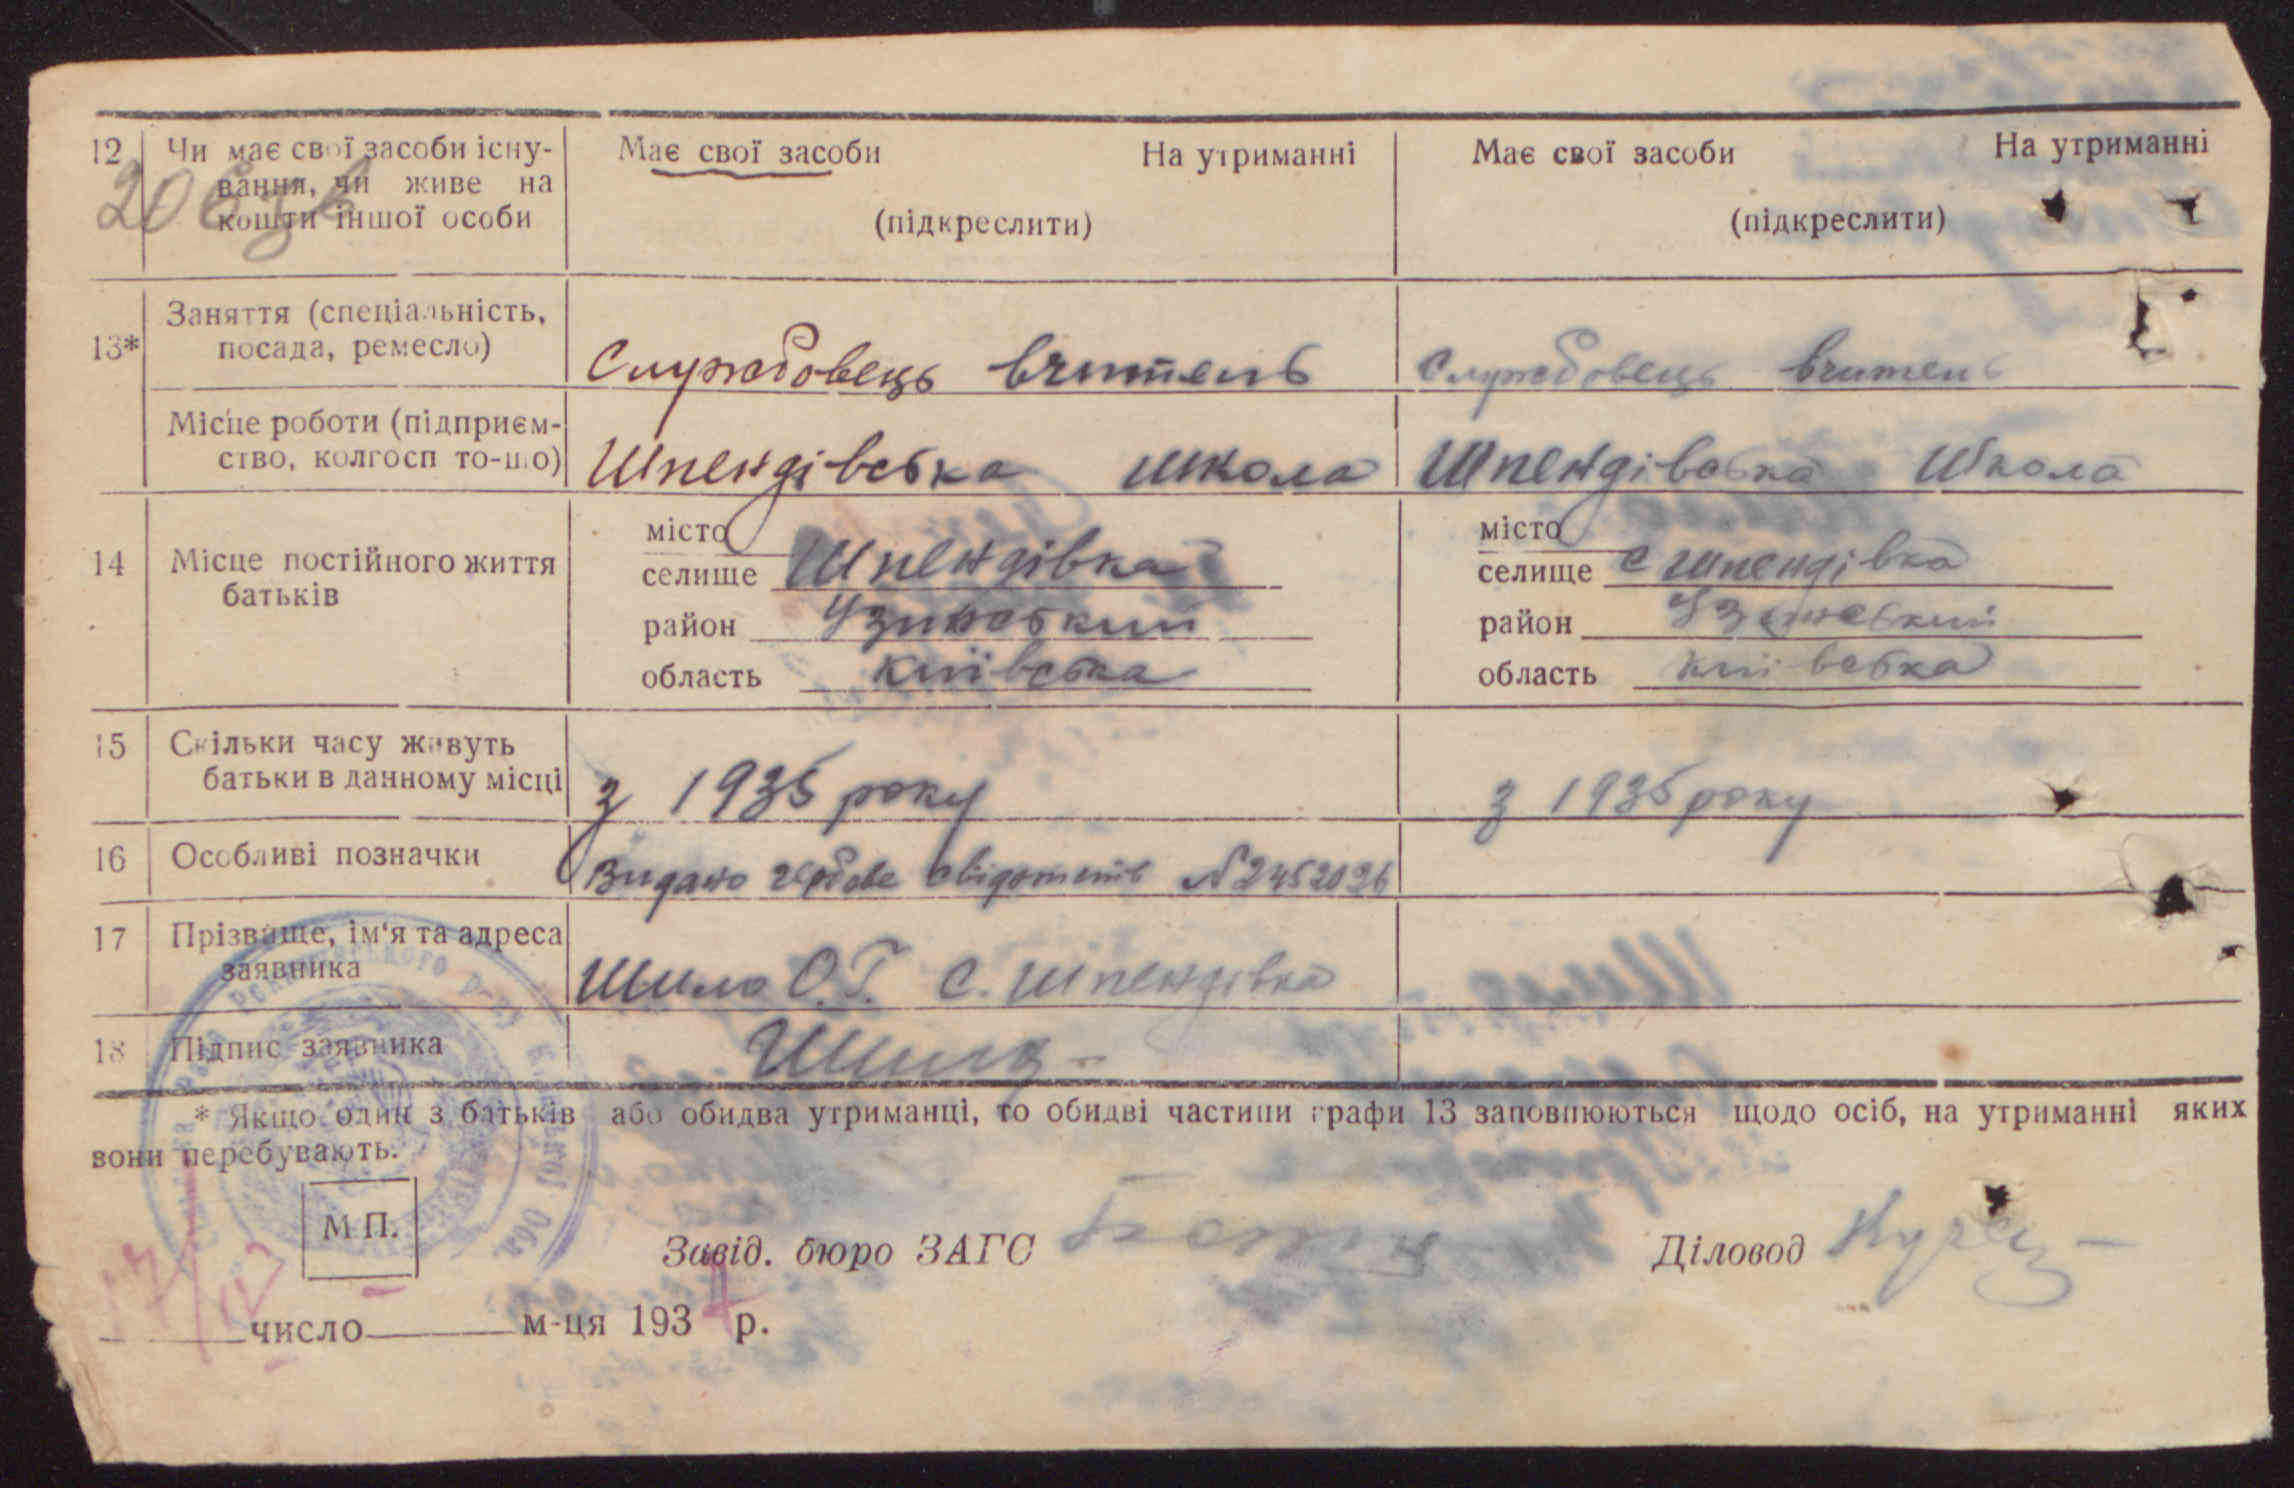 12 Чи має свої засоби існу- Має свої засоби На утриманні Має свої засоби На утриманні
вання, чи живе на
кошти іншої особи (підкреслити) (підкреслити)
Заняття (спеціальність,
13* посада, ремесло) Службовець вчитель Службовець вчитель
Місце роботи (підприєм-
ство, колгосп то-що) Шпендівська школа Шпендівська школа
місто місто
14 Місце постійного життя селище Шпендівка селище с Шпендівка
батьків
район Узинський район Узинський
область київська область київська
15 Скільки часу живуть
батьки в данному місці з 1935 року з 1935 року
16 Особливі позначки Видано гербове свідотство №2452026
17 Прізвище, ім'я та адреса
заявника Шило О.Г. с. Шпендівка
18 Підпис заявника Шило
* Якщо один з батьків або обидва утриманці, то обидві частини графи 13 заповнюються щодо осіб, на утриманні яких
вони перебувають.
М.П.
Завід. бюро ЗАГС Діловод
17/IV число м-ця 1937 р.